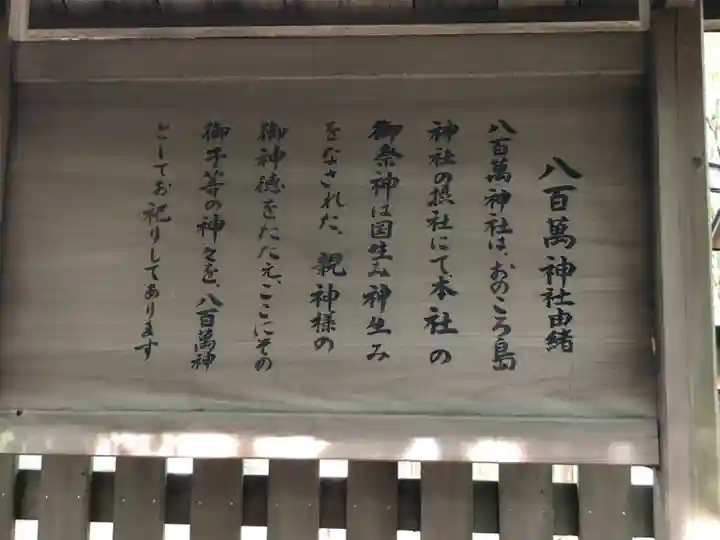 八百萬神社由緒
八百萬神社は、おのころ島
神社の摂社にて、本社の
御祭神は国生み神生み
をなされた、親神様の
御神徳をたたえ、ここにその
御子等の神々を、八百萬神
としてお祀りしてあります